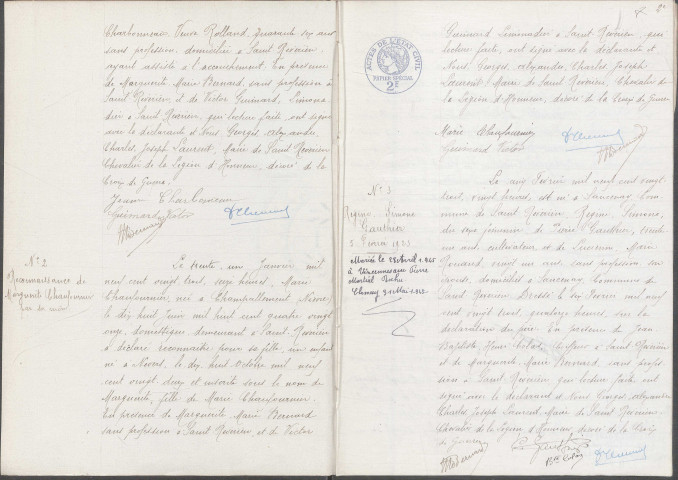 Charbonneau Veuve Rolland, quarante six ans
sans profession, domiciliée à Saint Révérien,
ayant assisté à l'accouchement. En présence
de Marguerite Marie Bernard, sans profession à
Saint Révérien et de Victor Guimard, limona-
dier à Saint Révérien, qui lecture faite ont signé
avec la déclarante et Nous Georges, Alexandre,
Charles, Joseph Laurent, Maire de Saint Révérien
Chevalier de la Légion d'Honneur, décoré de la
Croix de Guerre.
Guimard Victor
N° 2
Reconnaissance de
Marguerite
Le trente un Janvier mil
neuf cent vingt trois, seize heures, Marie
née à Champallement Nièvre
le dix huit Juin mil huit cent quatre vingt
onze, domestique, demeurant à Saint Révérien
a déclaré reconnaître pour sa fille, un enfant
né à Nevers, le dix huit Octobre mil neuf
cent vingt deux et inscrite sous le nom de
Marguerite, fille de Marie
En présence de Marguerite Marie Bernard
sans profession à Saint Révérien, et de Victor
2e
Guimard limonadier à Saint Révérien, qui
lecture faite, ont signé avec la déclarante et
Nous, Georges, Alexandre, Charles, Joseph
Laurent, Maire de Saint Révérien, Chevalier de
la Légion d'Honneur, décoré de la Croix de Guerre
ACTES DE L'ÉTAT CIVIL
PAPIER SPÉCIAL
2F
Marie
Guimard Victor
N° 3
Régine Simone
Gauthier
5 Février 1923
Mariée le 28 Avril 1945
à
Le cinq Février mil neuf cent vingt
trois, vingt heures, est née à Sancenay, Com-
mune de Saint Révérien, Régine, Simone,
du sexe féminin de Gauthier, trente
un ans, cultivateur, et de Marie
vingt un ans, sans profession, son
épouse, domiciliés à Sancenay, Commune de
Saint Révérien. Dressé le six Février mil neuf
cent vingt trois, quatorze heures, sur la
déclaration du père. En présence de Jean
Baptiste Henri à Saint Révérien
et de Marguerite Marie Bernard sans profes-
sion à Saint Révérien, qui lecture faite ont
signé avec le déclarant et Nous Georges, Alexandre
Charles Joseph Laurent, Maire de Saint Révérien
Chevalier de la Légion d'Honneur, décoré de la Croix
de Guerre